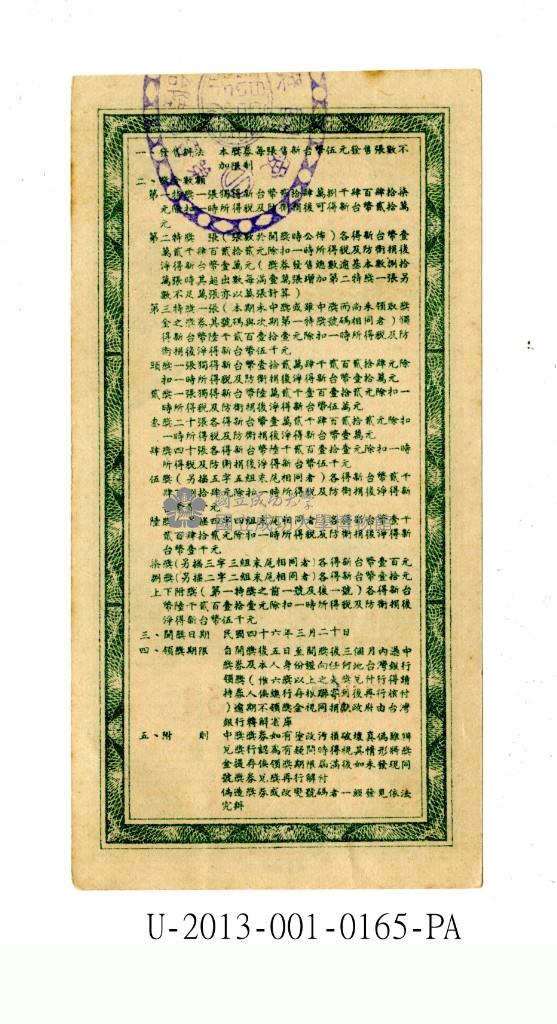 一、發售辦法 本獎券每張售新台幣伍元發售張數不
加限制
二、獎金數額
第一特獎一張獨得新台幣貳拾肆萬捌千肆百肆拾柒
元除扣一時所得稅及防衛捐後可得新台幣貳拾萬
元
第二特獎 張(張數於開獎時公佈)各得新台幣壹
萬貳千肆百貳拾貳元除扣一時所得稅及防衛捐後
淨得新台幣壹萬元(獎券發售總數逾基本數捌拾
萬張時其超出數每滿壹萬張增加第二特獎一張另
數不足萬張亦以萬張計算)
第三特獎一張(本期未中獎或雖中獎而尚未領取獎
金之獎券其號碼與次期第一特獎號碼相同者)獨
得新台幣陸千貳百壹拾壹元除扣一時所得稅及防
衛捐後淨得新台幣伍千元
頭獎一張獨得新台幣壹拾貳萬肆千貳百貳拾肆元除
扣一時所得稅及防衛捐後淨得新台幣壹拾萬元
貳獎一張獨得新台幣陸萬貳千壹百壹拾貳元除扣一
時所得稅及防衛捐後淨得新台幣伍萬元
叁獎二十張各得新台幣壹萬貳千肆百貳拾貳元除扣
一時所得稅及防衛捐後淨得新台幣壹萬元
肆獎四十張各得新台幣陸千貳百壹拾壹元除扣一時
所得稅及防衛捐後淨得新台幣伍千元
伍獎(另搖五字五組末尾相同者)各得新台幣貳千
肆百 拾肆元除扣一時所得稅及防衛捐後淨得新
台幣貳千元
陸獎(另搖四字四組末尾相同者)各得新台幣壹千
貳百肆拾貳元除扣一時所得稅及防衛捐後淨得新
台幣壹千元
柒獎(另搖三字三組末尾相同者)各得新台幣壹百元
捌獎(另搖二字二組末尾相同者)各得新台幣壹拾元
上下附獎(第一特獎之前一號及後一號)各得新台
幣陸千貳百壹拾壹元除扣一時所得稅及防衛捐後
淨得新台幣伍千元
三、開獎日期 民國四十六年三月二十日
四、領獎期限 自開獎後五日至開獎後三個月內憑中
獎券及本人身份證向任何地台灣銀行
領獎(惟六獎以上之大獎兌付行得請
持券人俟總行存根聯寄到後再行核付
)逾期不領獎金視同捐獻政府由台灣
銀行轉解省庫
五、附 則 中獎獎券如有塗改污損破壞真偽難辨
兌獎行認為有疑問時得視其情形將獎
金提存俟領獎期限屆滿後如未發現同
號獎券兌獎再行解付
偽造獎券或改變號碼者一經發見依法
究辦
國立成功大學
國立成功大學博物館
U-2013-001-0165-PA